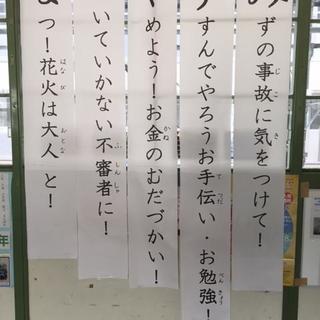 ずの事故に気をつけて！
すんでやろうお手伝い・お勉強！
めよう！お金のむだづかい！
いていかない不審者に！
つ！花火は大人と！